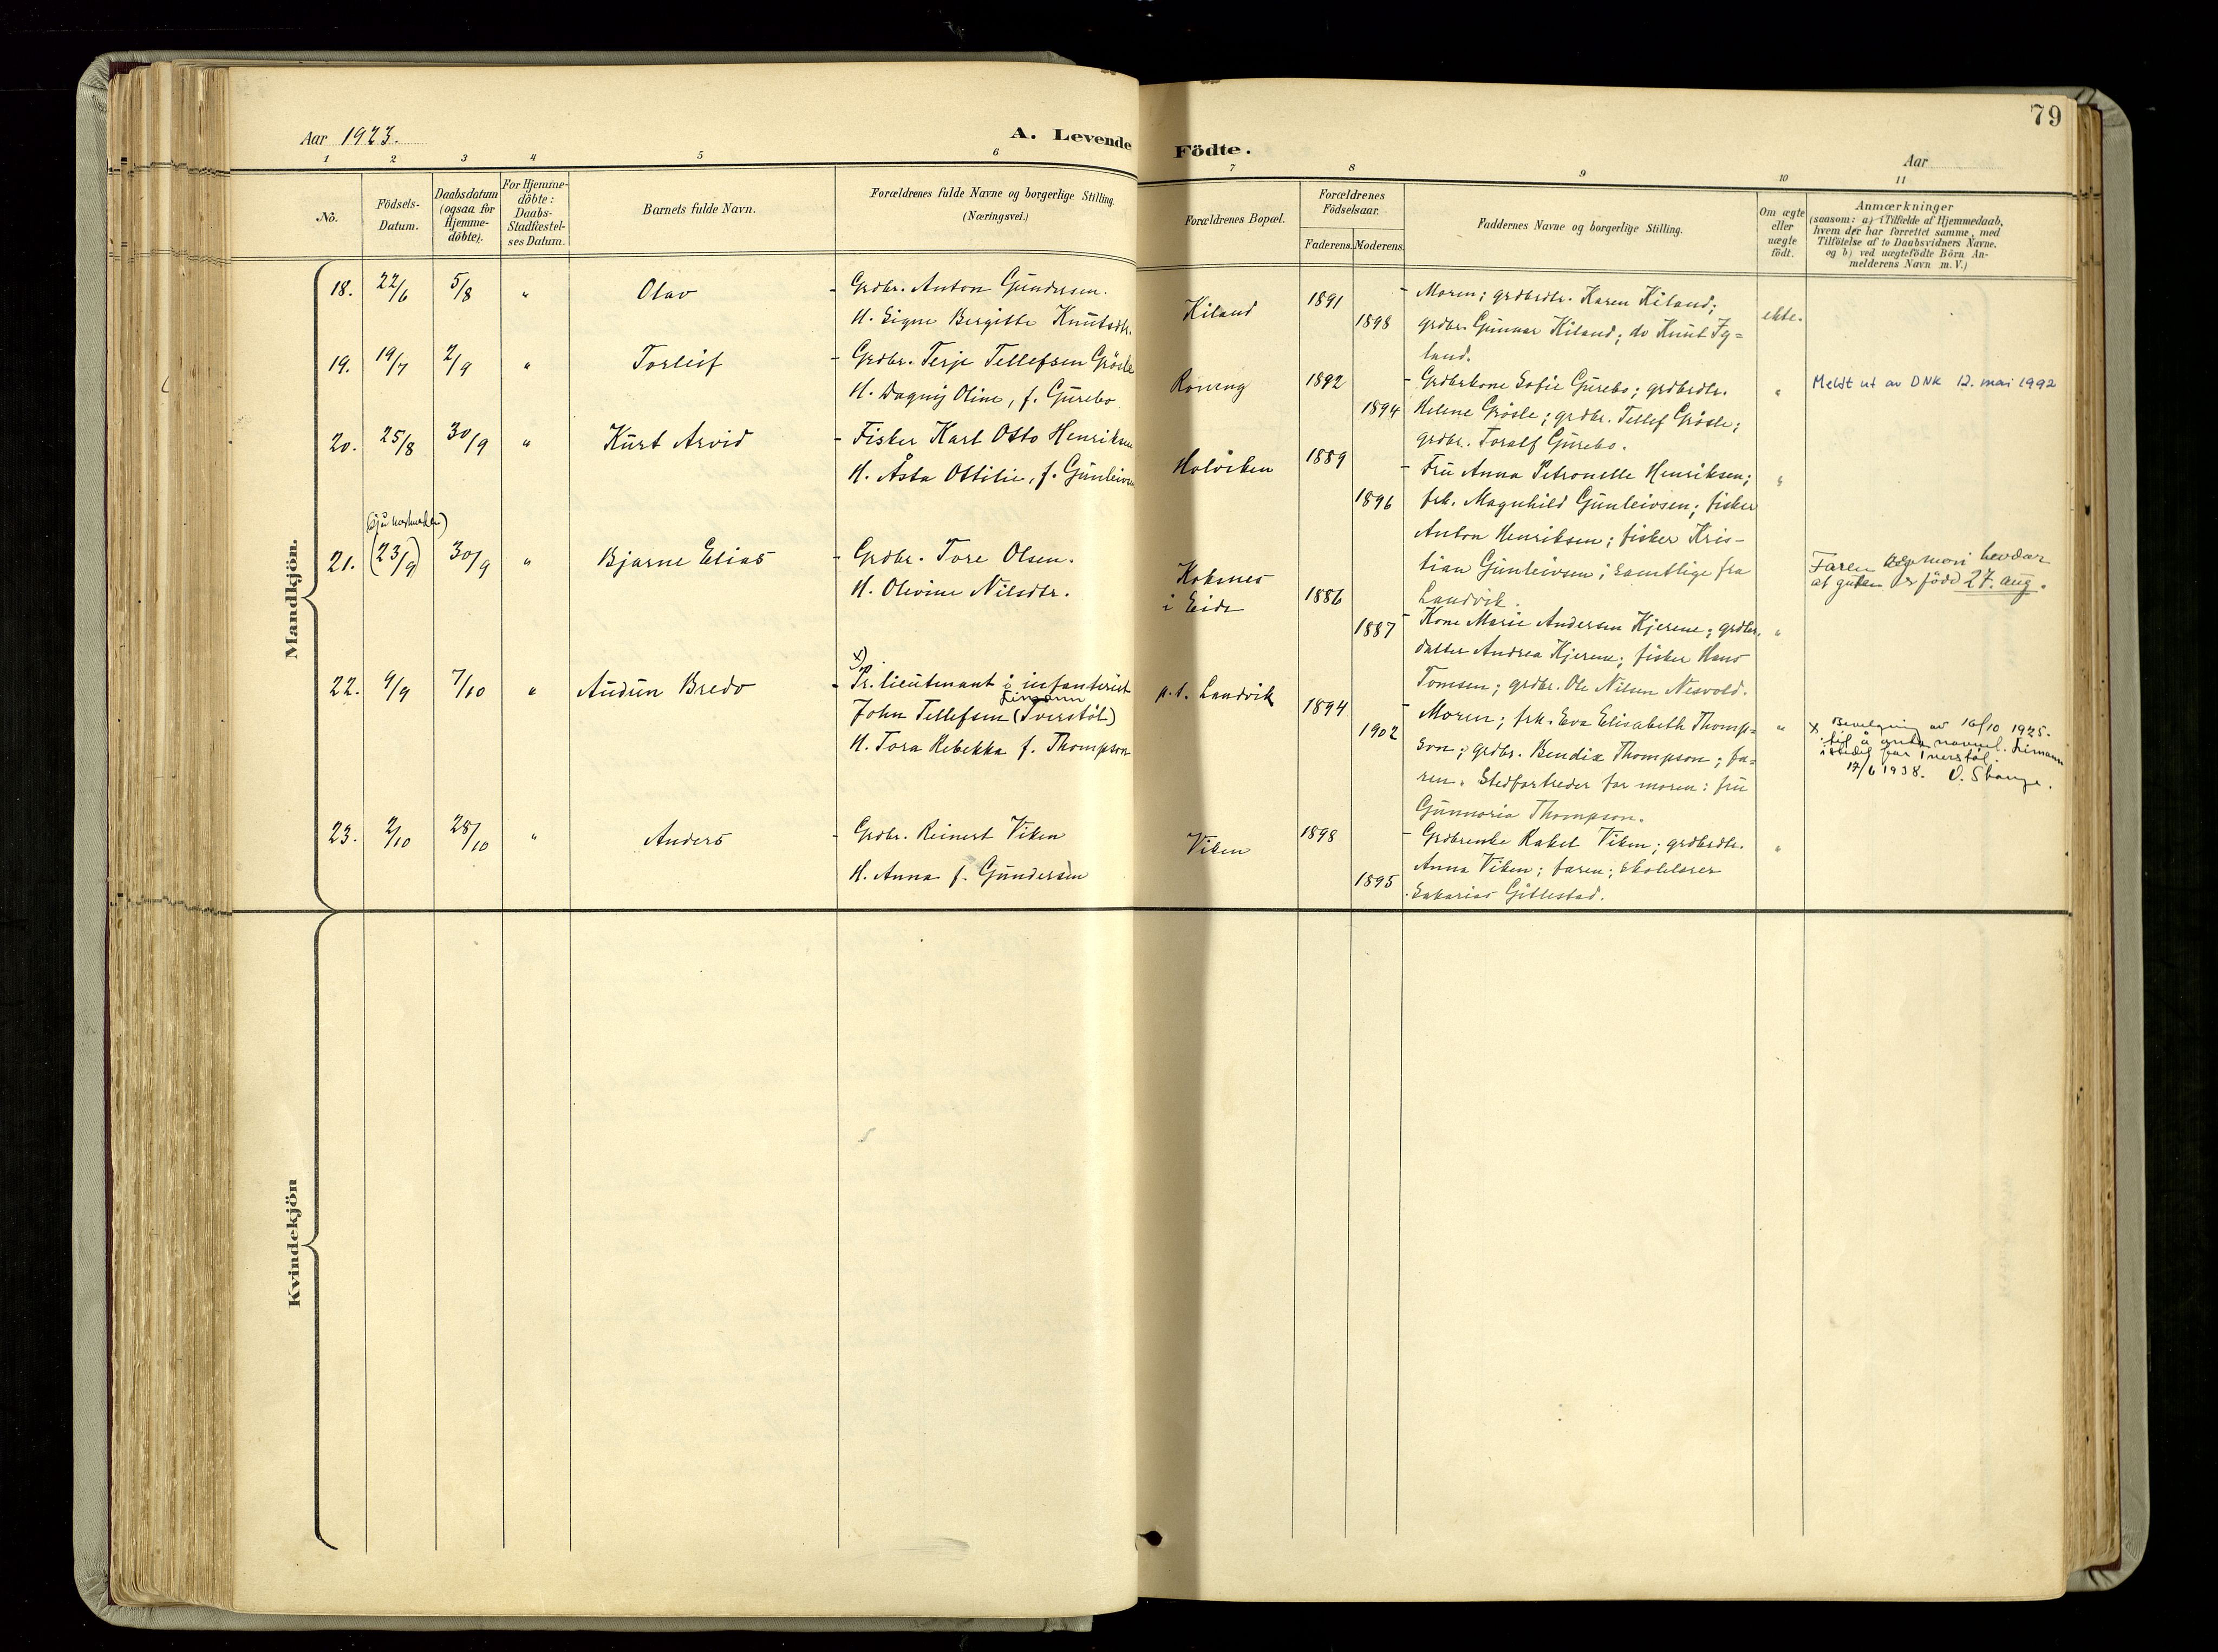 79
Aar 1923.
A. Levende Födte.
Aar
1 2 3 4 5 6 7 8 9 10 11
No.
Födsels-
Datum.
Daabsdatum
(ogsaa for
Hjemme-
döbte).
For Hjemme-
döbte:
Daabs-
Stadfæstel-
ses Datum.
Barnets fulde Navn.
Forældrenes fulde Navne og borgerlige Stilling
(Næringsvei.)
Forældrenes Bopæl.
Forældrenes
Födselsaar.
Faderens. Moderens.
Faddernes Navne og borgerlige Stilling.
Om ægte
eller
uægte
födt.
Anmærkninger
(saasom: a) i Tilfælde af Hjemmedaab,
hvem der har forrettet samme, med
Tilföielse af to Daabsvidners Navne,
og b) ved uægtefödte Börn An-
melderens Navn m. V.)
Mandkjön.
18. 22/6 5/8 " Olav
- Grdbr. Anton Gundersen.
H. Signe Bergitte Knutsdtr.
Kiland
1891
1898
- Moren; grdbrdtr. Karen Kiland;
grdbr. Gunnar Kiland; do Knut Fy=
land.
ekte.
19. 19/7 2/9 " Torleif
- Grdbr. Terje Tellefsen Grösle
H. Dagny Oline, f. Gurebo
Roning
1892
1894
- Grdbrkone Sofie Gurebo; grdbrdtr.
Helene Grösle; grdbr. Tellef Grösle;
grdbr. Toralf Gurebo.
"
Meldt ut av DNK 12. mai 1992
20. 25/8 30/9 " Kurt Arvid
- Fisker Karl Otto Henriksen
H. Åsta Ottilie, f. Gunleivsen
Holviken
1889
1896
- Fru Anna Petronelle Henriksen;
frk. Magnhild Gunleivsen; fisker
Anton Henriksen; fisker Kris-
tian Gunleivsen; samtlige fra
Landvik.
"
21. (23/9) 30/9 " Bjarne Elias
- Grdbr. Tore Olsen.
H. Olevine Nilsdtr.
Koksnes
i Eide
1886
1887
- Kone Marie Andersen Kjerene; grdbr.
datter Andrea Kjerene; fisker Hans
Tomsen; grdbr. Ole Nilsen Nesvold.
"
Faren og mori hevdar
at guten er född 27. aug.
22. 9/9 7/10 " Audun Bredo
x)
- Pr. lieutenant i infanteriet
Leimann
John Tellefsen (Tverstöl)
H. Tora Rebekka f. Thompson
p.t. Landvik
1894
1902
- Moren; frk. Eva Elisabeth Thomp=
son; grdbr. Bendix Thompson; fa-
ren. Stedfortreder for moren: fru
Gunnoria Thompson.
"
x Bevilgning av 16/10 1925.
til å navnet Leimann
istedet for Tverstöl.
17/6 1938. O. Stange.
23. 2/10 28/10 " Anders
- Grdbr. Reinert Viken
H. Anna f. Gundersen
Viken
1898
1895
- Grdbrenke Rakel Viken; grdbrdtr.
Anna Viken; faren; skolelærer
Sakarias Gitlestad.
"
Kvindekjön